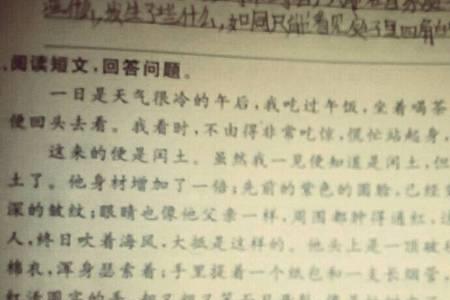 发生了些什么,如同只能看见
、阅读短文,回答问题。
一日是天气很冷的午后,我吃过午饭,坐着喝茶
便回头去看。我看时,不由得非常吃惊,慌忙站起身,
这来的便是闰土。虽然我一见便知道是闰土,但
土了。他身材增加了一倍;先前的紫色的圆脸,已经
深的皱纹;眼睛也像他父亲一样,周围都肿得通红,
人,终日吹着海风,大抵是这样的。他头上是一顶破
棉衣,浑身瑟索着;手里提着一个纸包和一支长烟管,
红活圆实的手,